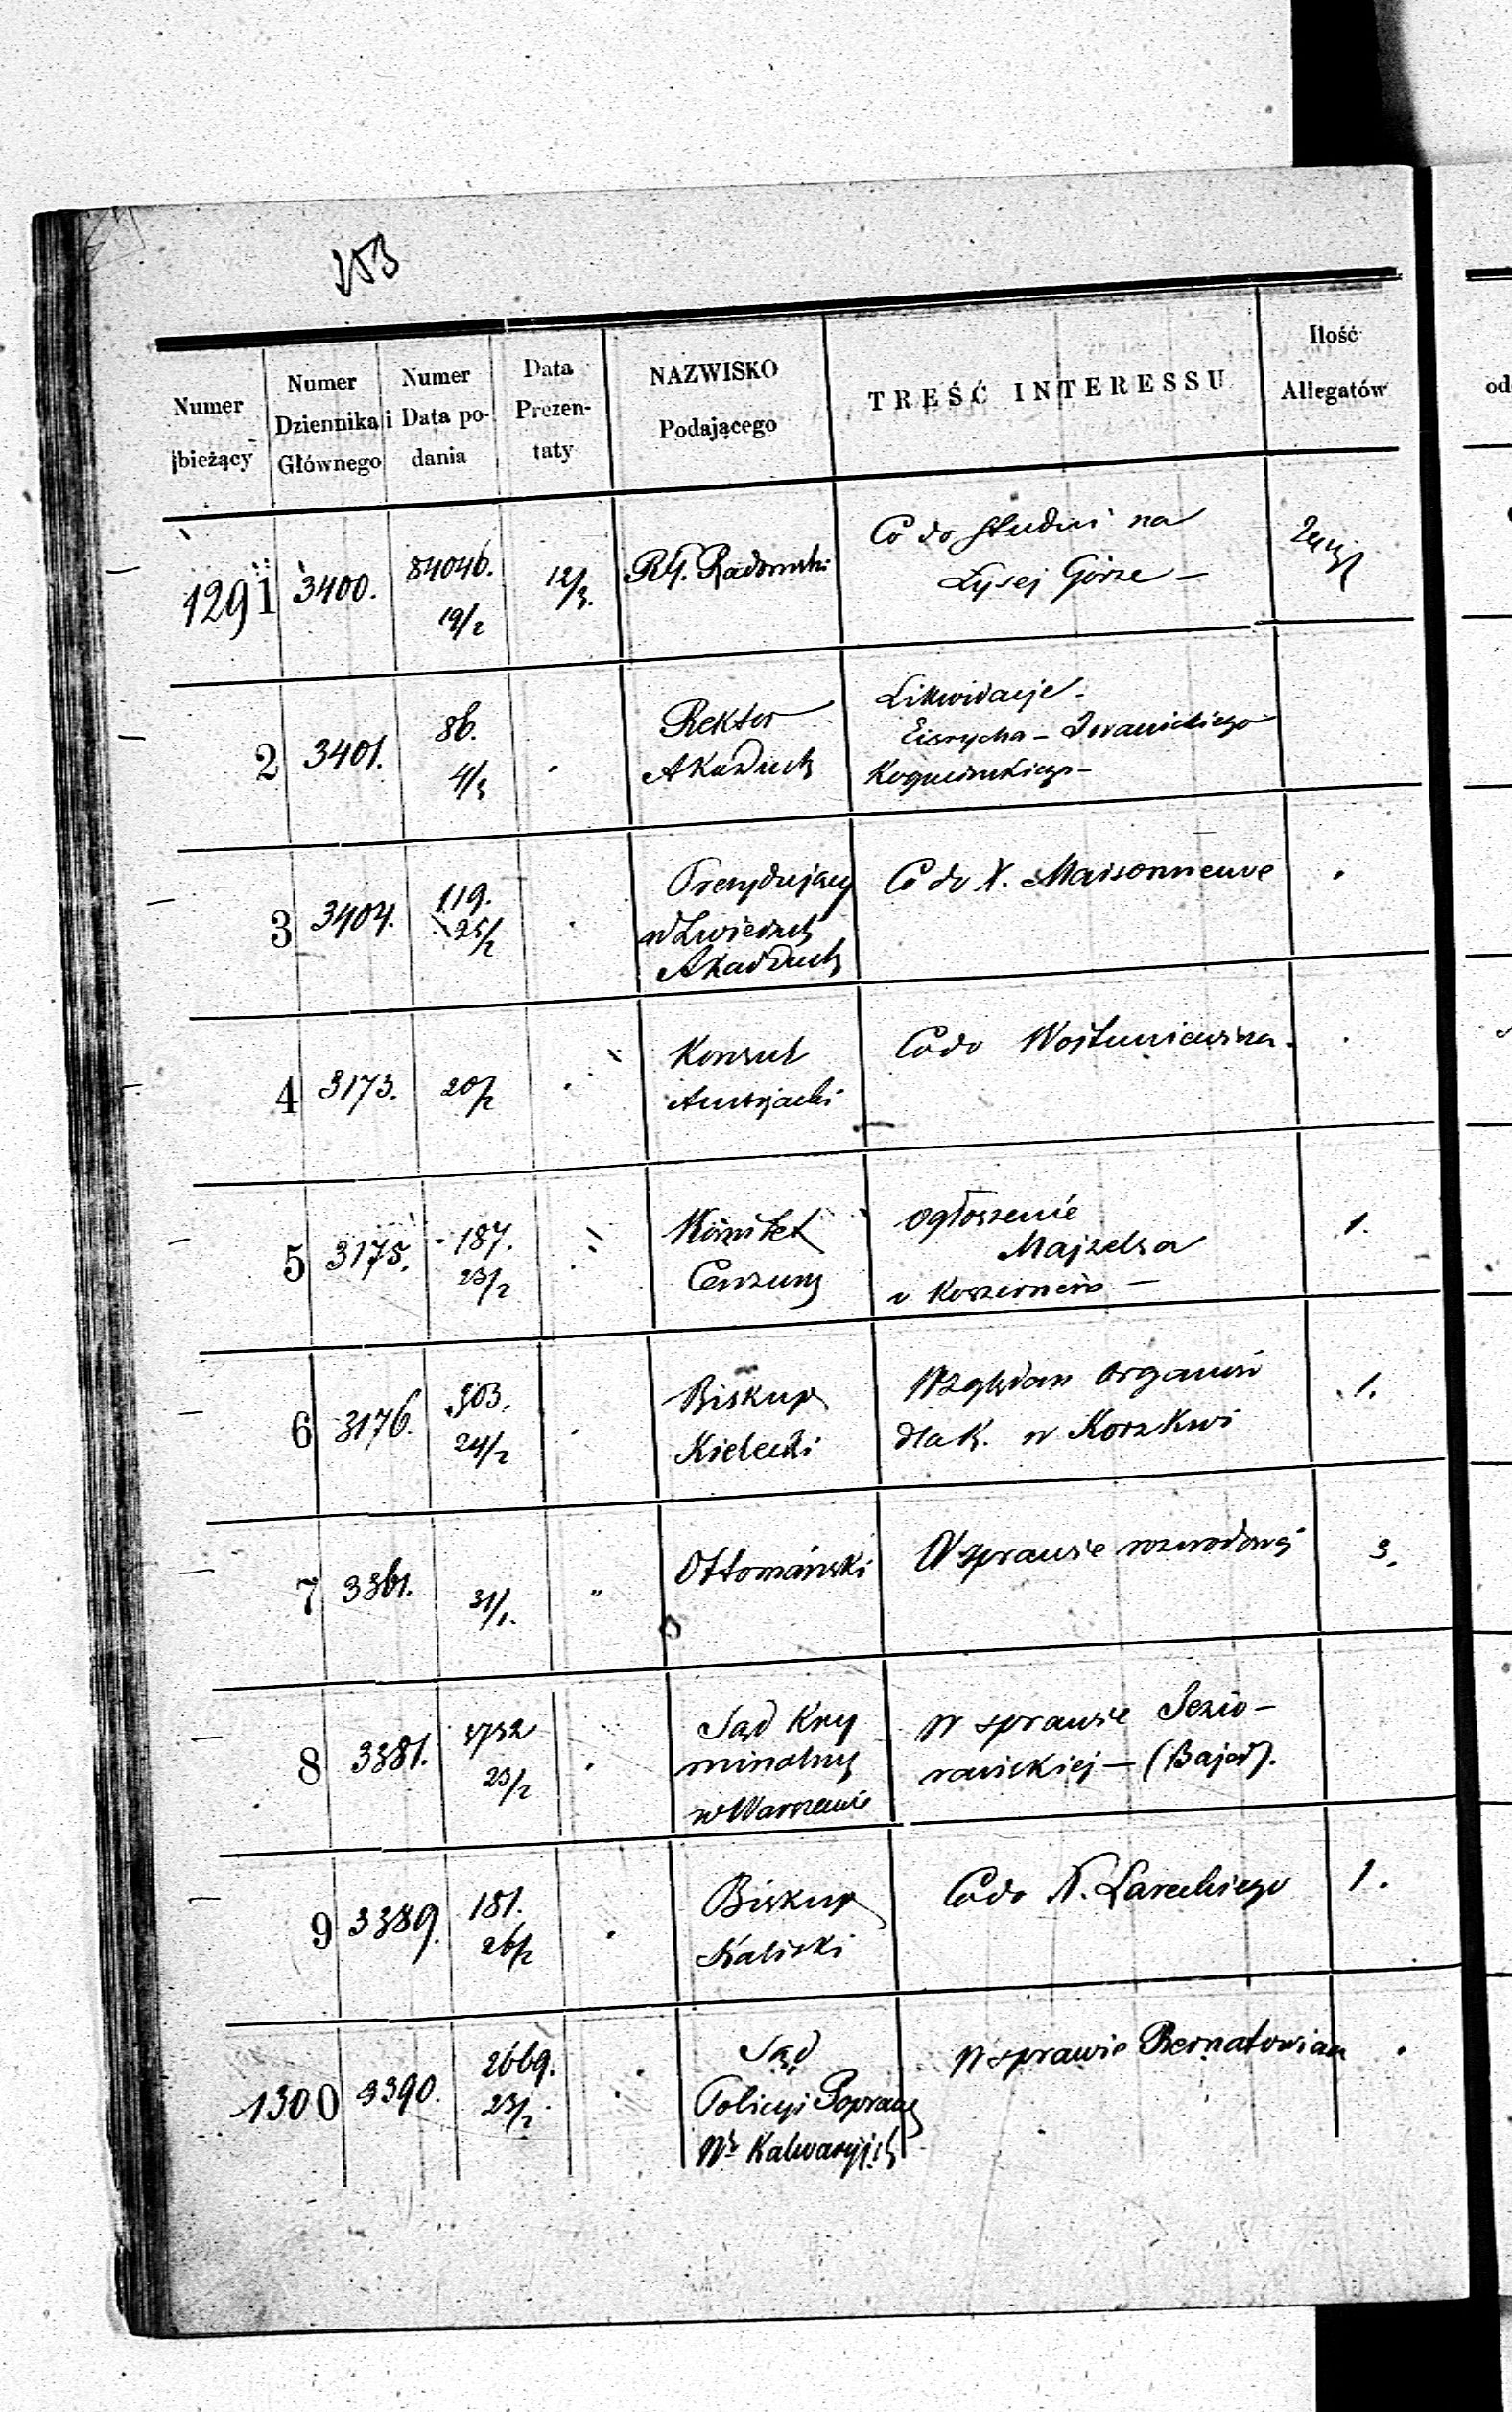 153
Numer bieżący
Numer Dziennika Głównego
Numer i Data podania
Data Prezentaty
NAZWISKO Podającego
TREŚĆ INTERESSU
Ilość Allegatów
1291 3400. 84046. 19/2 12/3. RG. Radomski
Co do studni na
Łysej Górze —
2 3401. 86. 4/3
Rektor
Akad Duch
Likwidacje
3 3404. 119. 25/2
Prezydujący
w Zwierzch
Akad Duch
Co do X. Maisonneuve
4 3173. 20/2
Konsul
Austryacki
Co do Wojtuniewicza.
5 3175. 187. 23/2
Komitet
Cenzury
ogłoszenie
Majzelsa
o Koszernem — 1.
6 3176. 303. 24/2
Biskup
Kielecki
Względem organów
dla K. w Korzkwi 1.
7 3361. 31/1. "
Ottomański
W sprawie rozwodowej 3.
8 3381. 5732 23/2
Sąd Kry
minalny
w Warszawie
W sprawie Jezio-
rańskiej — (Bajer).
9 3389. 181. 26/2
Biskup
Kaliski
Co do X. Lareckiego 1.
1300 3390. 2669. 23/2
Sąd
Policyi Popraw
W Kalwaryi
W sprawie Bernatowicza